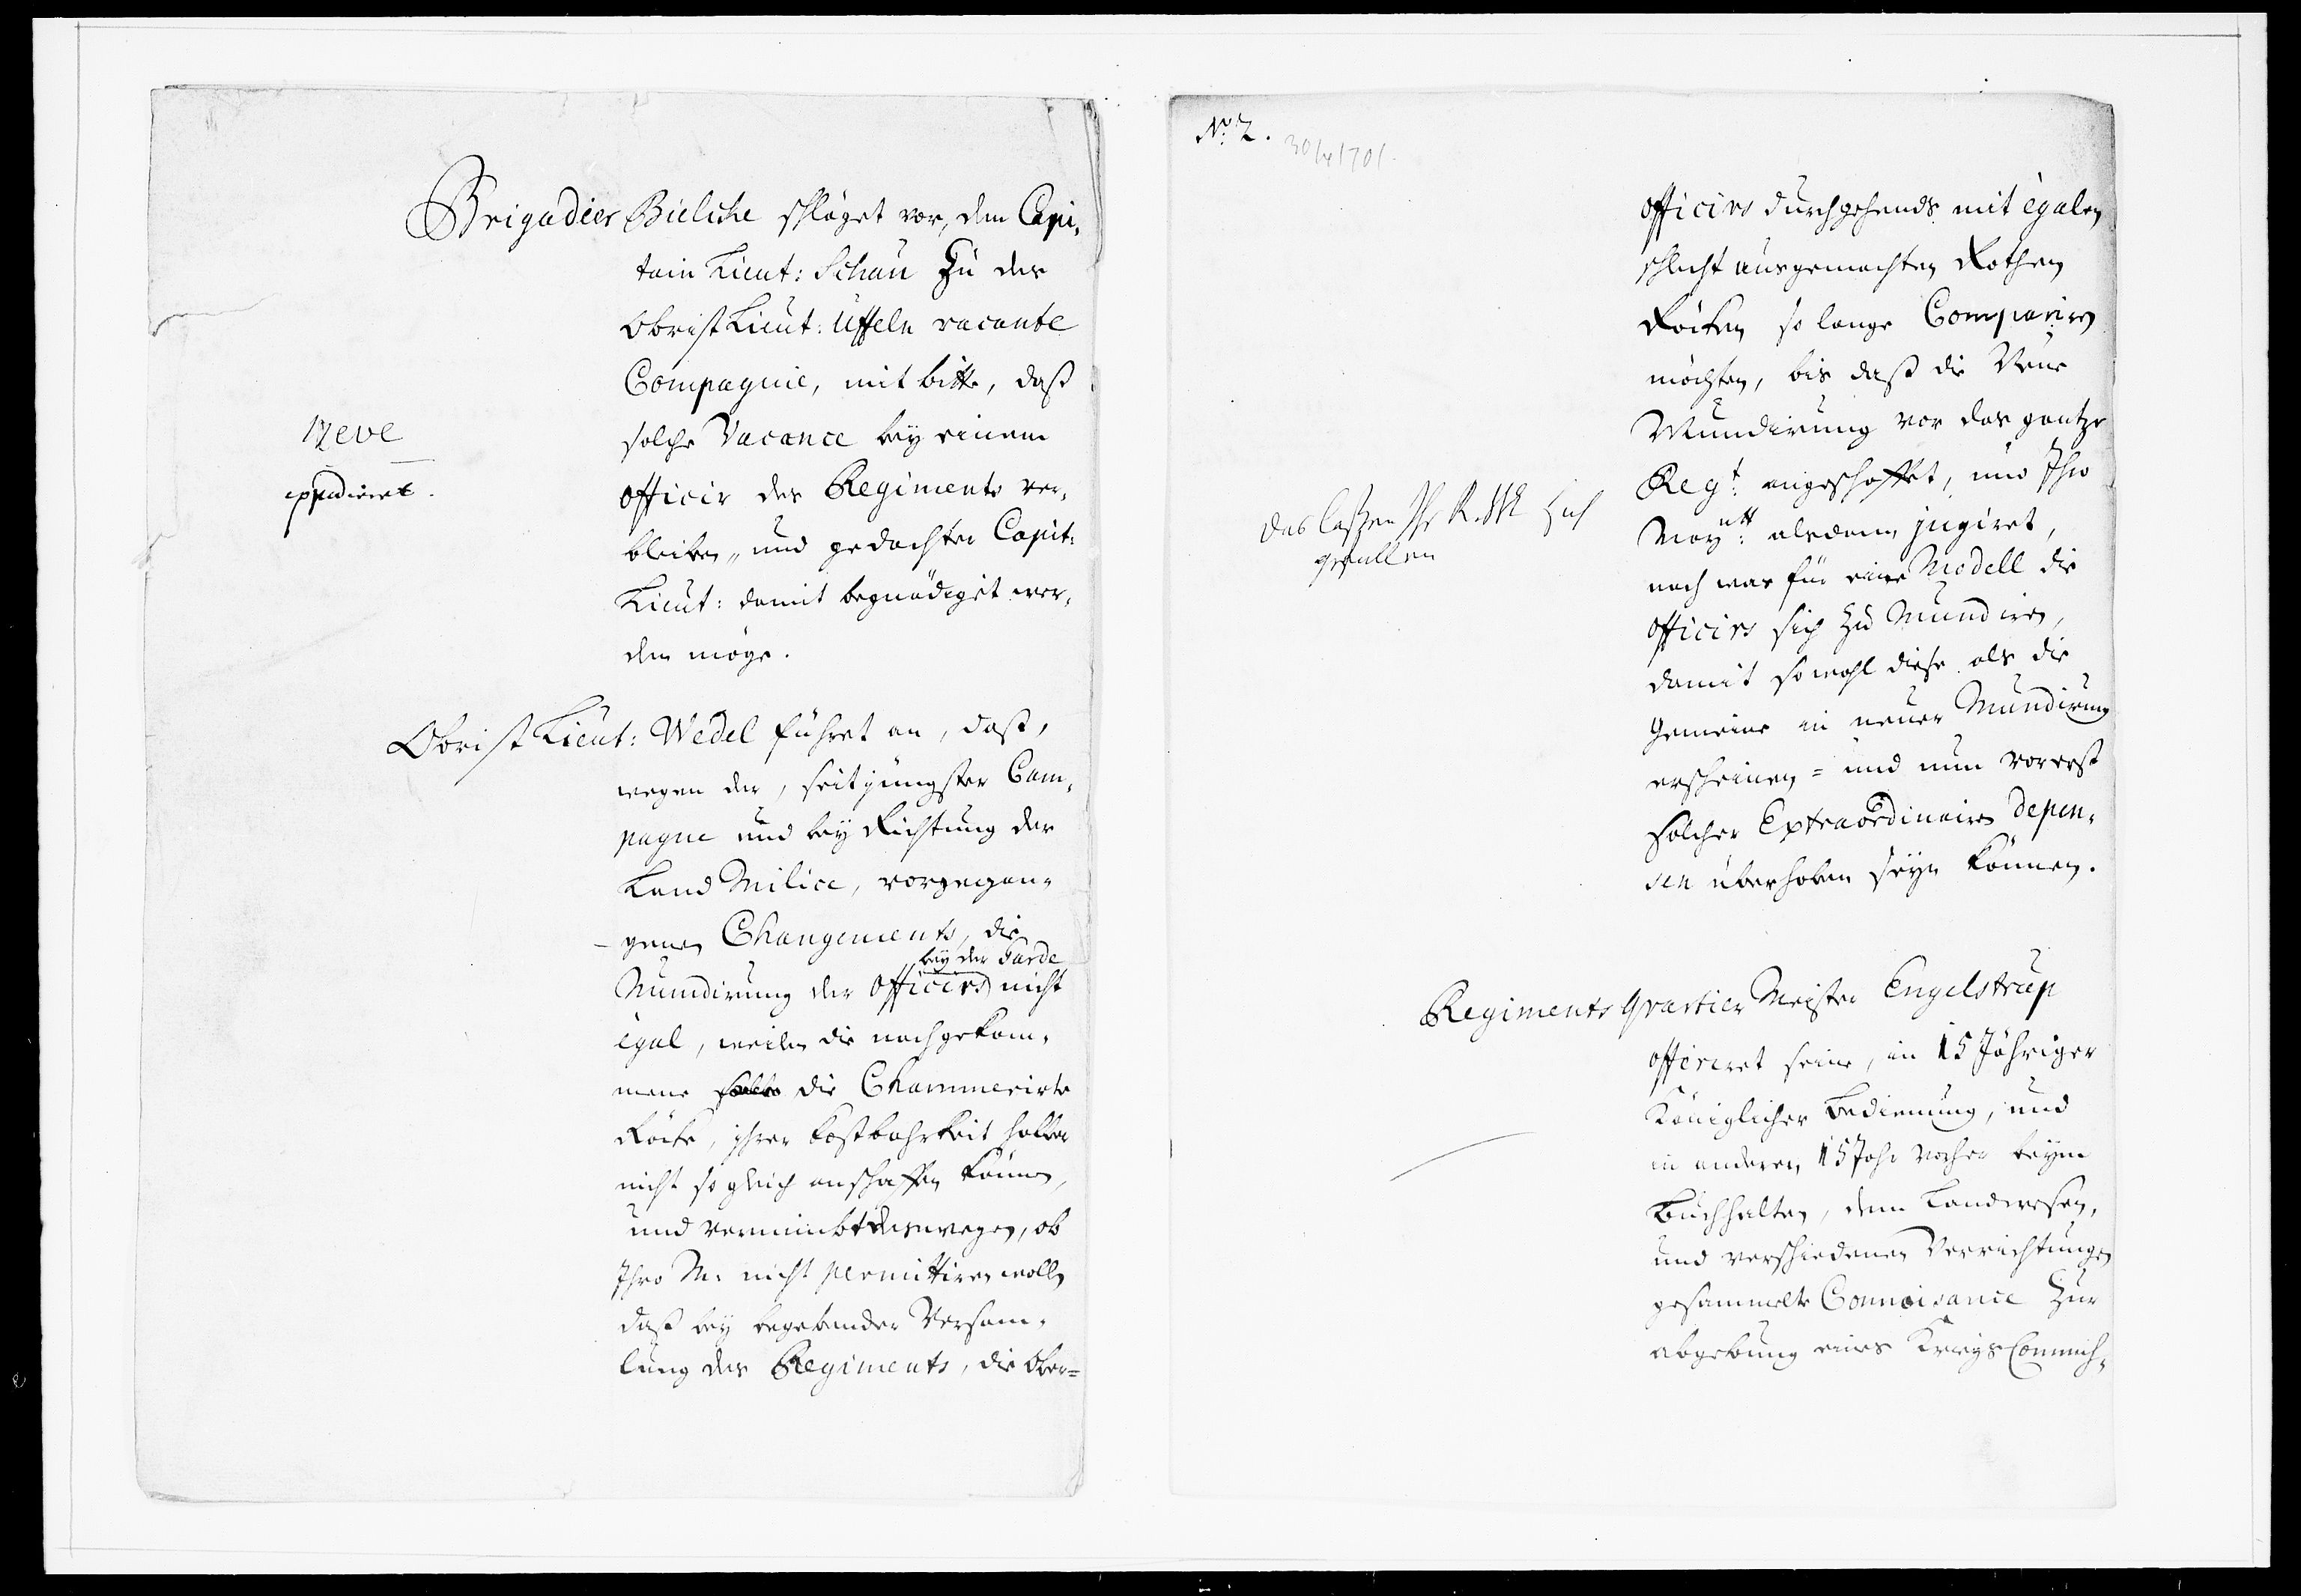 Brigadier Bielche schläget vor, den Capi,
tain Lieut: Schau zu des
Obrist Lieut: Uffeln vacante
Compagnie, mit bitte, daß
solche Vacance bey einem
Officir des Regiments ver,
bleiben, und gedachter Capit:
Lieut: damit begnädiget wer,
den möge.
Neve
expediret.
Obrist Lieut: Wedel führet an, daß,
wegen der, seit jüngster Cam,
pagne und bey Richtung der
Land Milice, vorgegan,
genen Changements, die
bey der Garde
Mundirung der Officirs nicht
égal, weilen die nachgekom,
mene die Chammerirte
Röcke, ihrer Kostbahrkeit halber
nicht so gleich anschaffen können,
und vernimbt deswegen, ob
Ihro M: nicht permittiren wollen
daß bey begebender Versam,
lung des Regiments, die Ober=
No: 2.
30/4 1701.
Officirs durchgehends mit égalen
schlecht ausgemachten Rothen
Röcken so lange Compariren
möchten, bis daß die Neue
Mundirung vor das gantze
Regt: angeschaffet, und Ihro
Maytt: alsdann jugiret,
nach was für eine Modell die
Officirs sich zu Mundiren,
damit sowohl diese als die
Gemeine in neuer Mundirung
erscheinen = und nun vorerst
solcher Extraordinairen depen,
sen überhoben seyn können.
Das laßen Ihr K. M. sich
gefallen
Regiments Qvartier Meister Engelstrup
offeriret seine, in 15 Jähriger
Königlicher Bedienung, und
in anderen 15 Jahr vorher beym
Buchhalten, dem Landwesen,
und verschiedenen Verrichtungen
gesammelte Connoisance zur
abgebung eines KriegsCommiss,